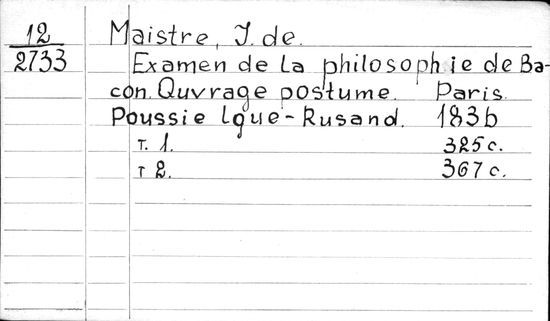 12
2733
Maistre, J. de.
Examen de la philosophie de Ba-
con. Quvrage postume. Paris
Poussie lgue-Rusand. 1836
T. 1. 325 c.
T 2. 367 c.